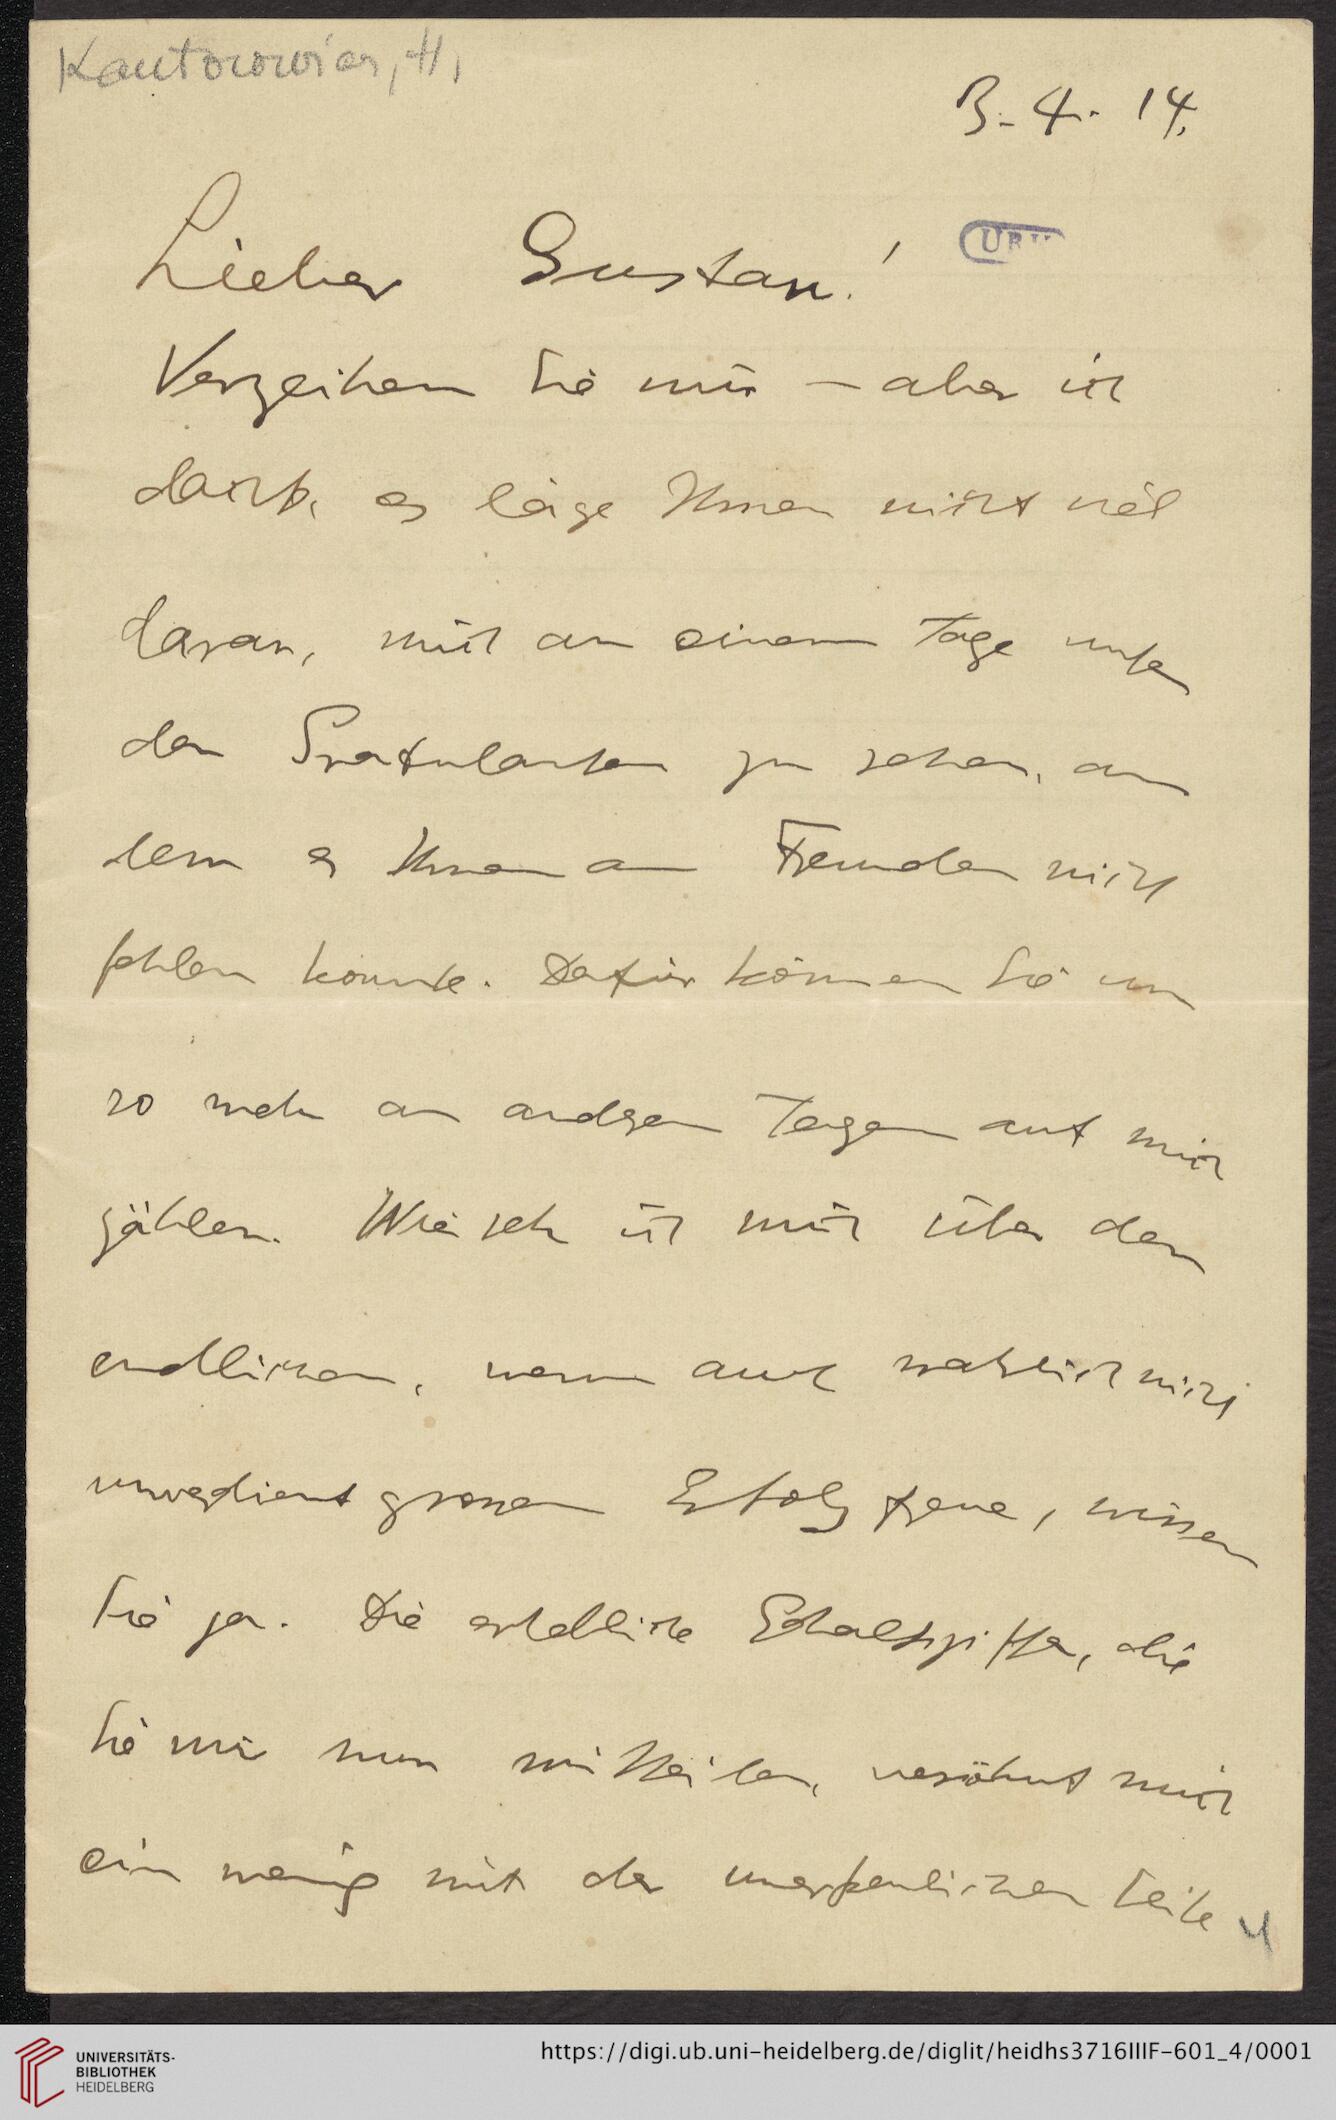 Kantorowicz, H.
3. 4. 14.
Lieber Gustav!
UBH
Verzeihen Sie mir – aber ich
dachte, es läge Ihnen nicht viel
daran, mich an einem Tage unter
den Gratulanten zu sehen, an
dem es Ihnen an Freunden nicht
fehlen konnte. Dafür können Sie um
so mehr an anderen Tagen auf mich
zählen. Wie sehr ich mich über den
endlichen, wenn auch wahrlich nicht
unverdient grossen Erfolg freue, wissen
Sie ja. Die erhebliche Gehaltsziffer, die
Sie mir nun mitteilen, versöhnt mich
ein wenig mit der unerfreulichen Seite
UNIVERSITÄTS-
BIBLIOTHEK
HEIDELBERG
https://digi.ub.uni-heidelberg.de/diglit/heidhs3716IIIF-601_4/0001